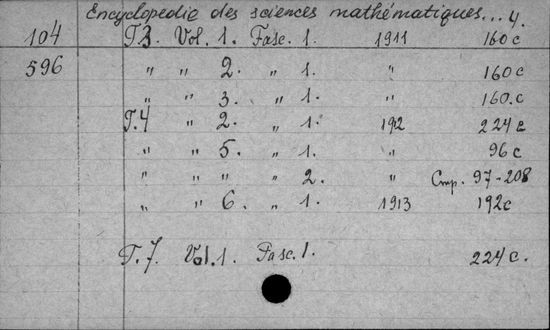 Encyclopedie des sciences mathématiques... 4.
104 T.3. Vol. 1. Fasc. 1. 1911 160 c
596 " " 2. " 1. " 160 c
" " 3. " 1. " 160. c
T.4 " 2. " 1. 1912 224 c
" " 5. " 1. " 96 c
" " " " 2. " Стр. 97-208
" " 6. " 1. 1913 192 c
T. 7. Vol. 1. Fasc. 1. 224 c.